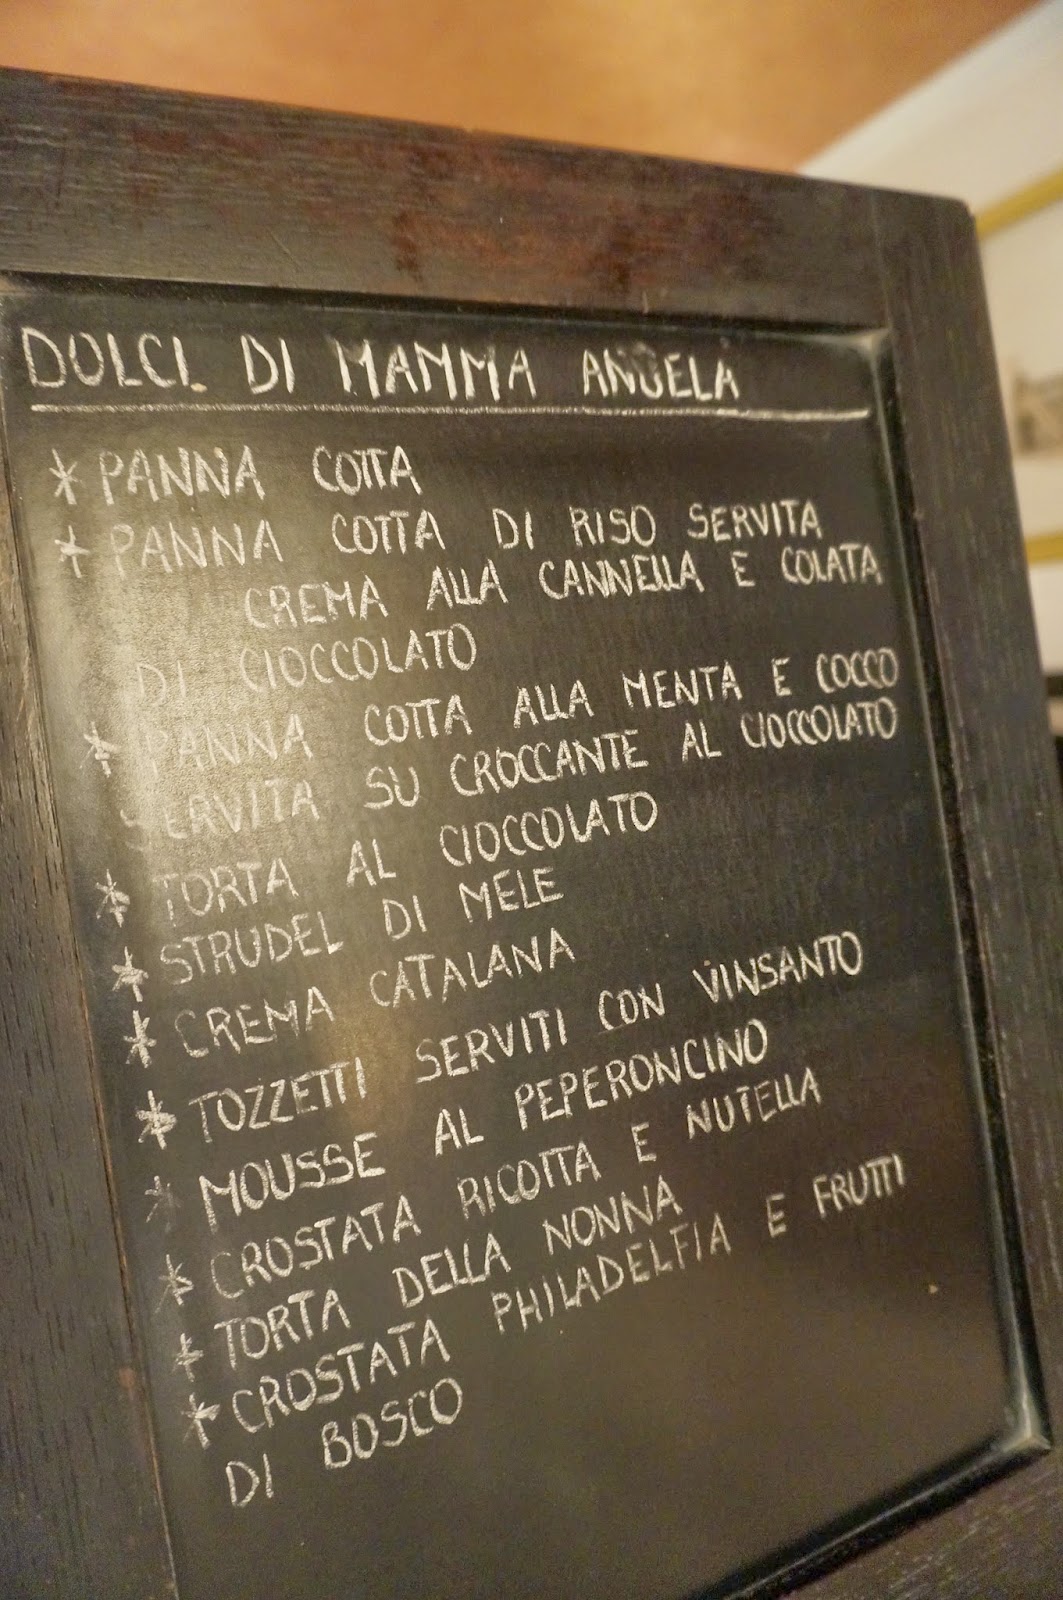 DOLCI DI MAMMA ANGELA
* PANNA COTTA
* PANNA COTTA DI RISO SERVITA
CREMA ALLA CANNELLA E COLATA
DI CIOCCOLATO
* PANNA COTTA ALLA MENTA E COCCO
SERVITA SU CROCCANTE AL CIOCCOLATO
* TORTA AL CIOCCOLATO
* STRUDEL DI MELE
* CREMA CATALANA
* TOZZETTI SERVITI CON VINSANTO
* MOUSSE AL PEPERONCINO
* CROSTATA RICOTTA E NUTELLA
* TORTA DELLA NONNA
* CROSTATA PHILADELFIA E FRUTTI
DI BOSCO